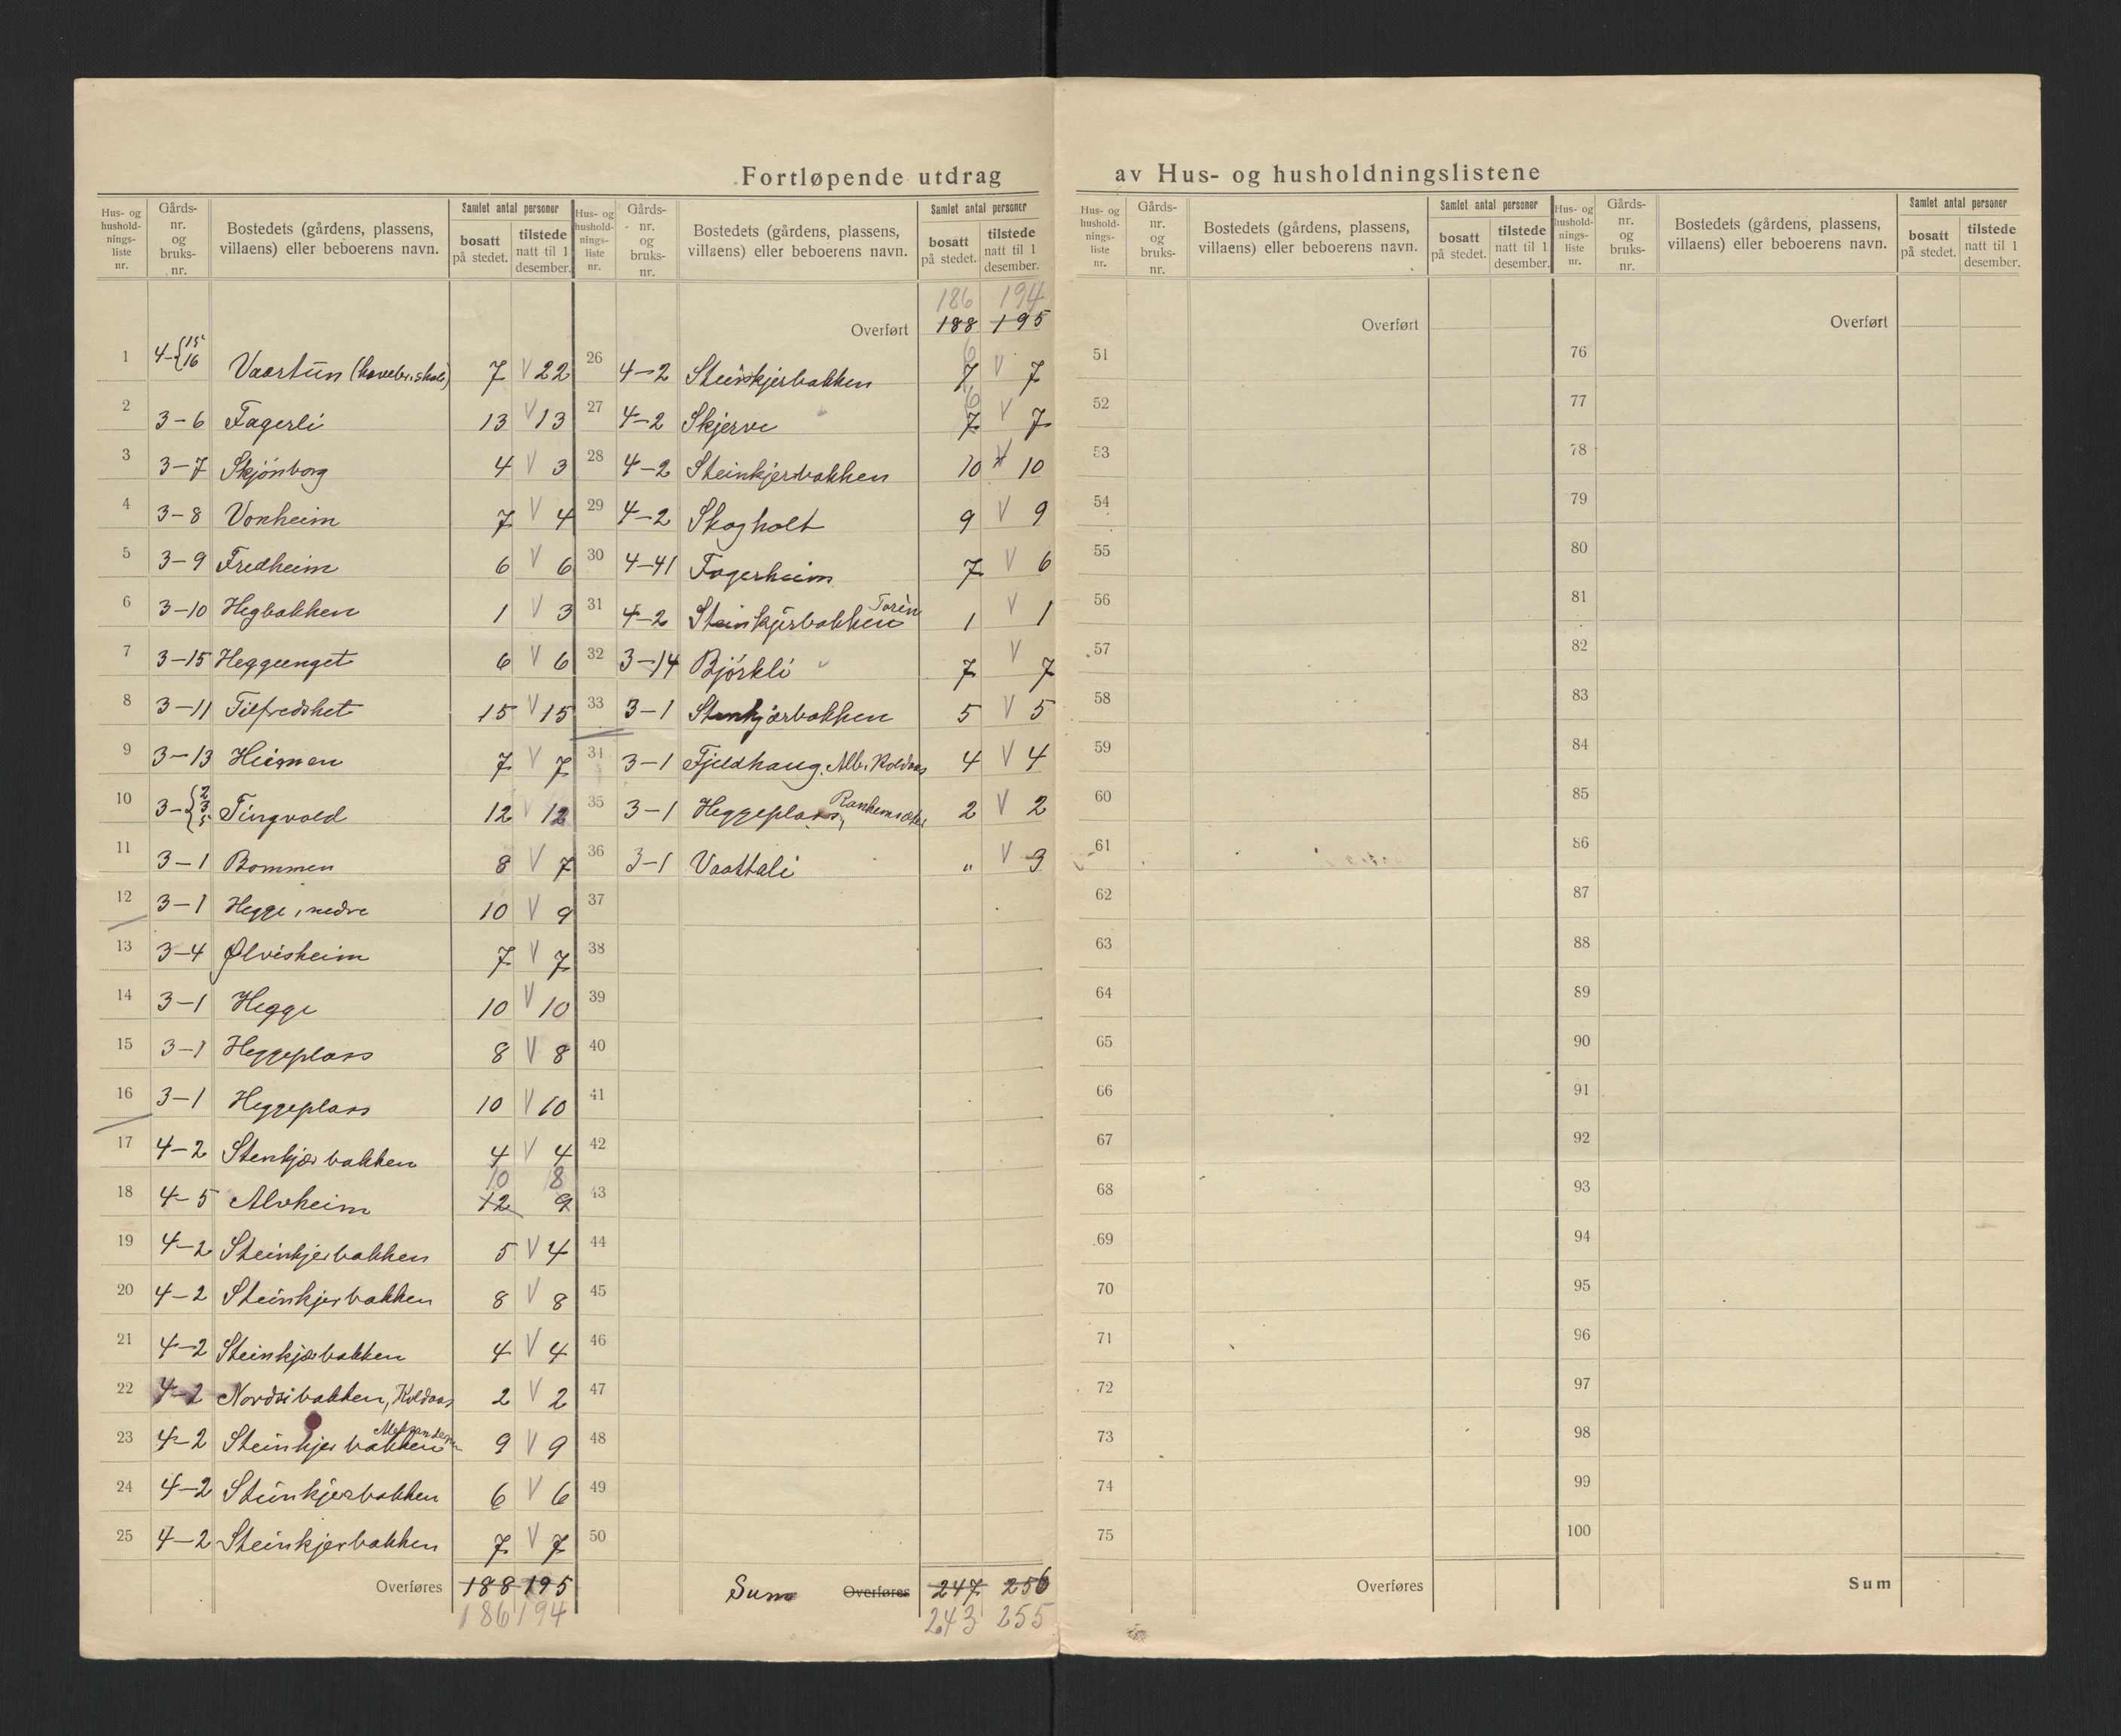 Fortløpende utdrag av Hus- og husholdningslistene
Hus- og hushold- nings- liste nr. Gårds- nr. og bruks- nr. Bostedets (gårdens, plassens, villaens) eller beboerens navn. Samlet antal personer bosatt på stedet. tilstede natt til 1 desember.
1 4-{15 16 Vaartun 7 V 22
2 3-6 Fagerli 13 V 13
3 3-7 Skjönborg 4 V 3
4 3-8 Vonheim 7 V 4
5 3-9 Fredheim 6 V 6
6 3-10 Hegbakken 1 V 3
7 3-15 Heggeenget 6 V 6
8 3-11 Tilfredshet 15 V 15
9 3-13 Heimen 7 V 7
10 3-{2 3 5 Tingvold 12 V 12
11 3-1 Bommen 8 V 7
12 3-1 Hegge, nedre 10 V 9
13 3-4 Ølvisheim 7 V 7
14 3-1 Hegge 10 V 10
15 3-1 Heggeplass 8 V 8
16 3-1 Heggeplass 10 V 10
17 4-2 Stenkjær bakken 4 V 4
10 8
18 4-5 Alvheim 12 9
19 4-2 Steinkjerbakken 5 V 4
20 4-2 Steinkjerbakken 8 V 8
21 4-2 Steinkjærbakken 4 V 4
22 4-2 Nordsibakken, Koldaas 2 V 2
23 4-2 Steinkjerbakken Aleksandersen 9 V 9
24 4-2 Steinkjerbakken 6 V 6
25 4-2 Steinkjerbakken 7 V 7
Overføres 188 195
186 194
Hus- og hushold- nings- liste nr. Gårds- nr. og bruks- nr. Bostedets (gårdens, plassens, villaens) eller beboerens navn. Samlet antal personer bosatt på stedet. tilstede natt til 1 desember.
186 194
Overført 188 195
6
26 4-2 Steinkjerbakken 7 V 7
6
27 4-2 Skjerve 7 V 7
28 4-2 Steinkjerbakken 10 V 10
29 4-2 Skogholt 9 V 9
30 4-41 Fagerheim 7 V 6
31 4-2 Steinkjerbakken Torèn 1 V 1
32 3-14 Björkli 7 V 7
33 3-1 Stenkjærbakken 5 V 5
34 3-1 Fjeldhaug. Alb. Koldaas 4 V 4
35 3-1 Heggeplass, 2 V 2
36 3-1 Vaattali " V 3
37
38
39
40
41
42
43
44
45
46
47
48
49
50
Sum Overføres 247 256
243 255
Hus- og hushold- nings- liste nr. Gårds- nr. og bruks- nr. Bostedets (gårdens, plassens, villaens) eller beboerens navn. Samlet antal personer bosatt på stedet. tilstede natt til 1 desember.
Overført
51
52
53
54
55
56
57
58
59
60
61
62
63
64
65
66
67
68
69
70
71
72
73
74
75
Overføres
Hus- og hushold- nings- liste nr. Gårds- nr. og bruks- nr. Bostedets (gårdens, plassens, villaens) eller beboerens navn. Samlet antal personer bosatt på stedet. tilstede natt til 1 desember.
Overført
76
77
78
79
80
81
82
83
84
85
86
87
88
89
90
91
92
93
94
95
96
97
98
99
100
Sum